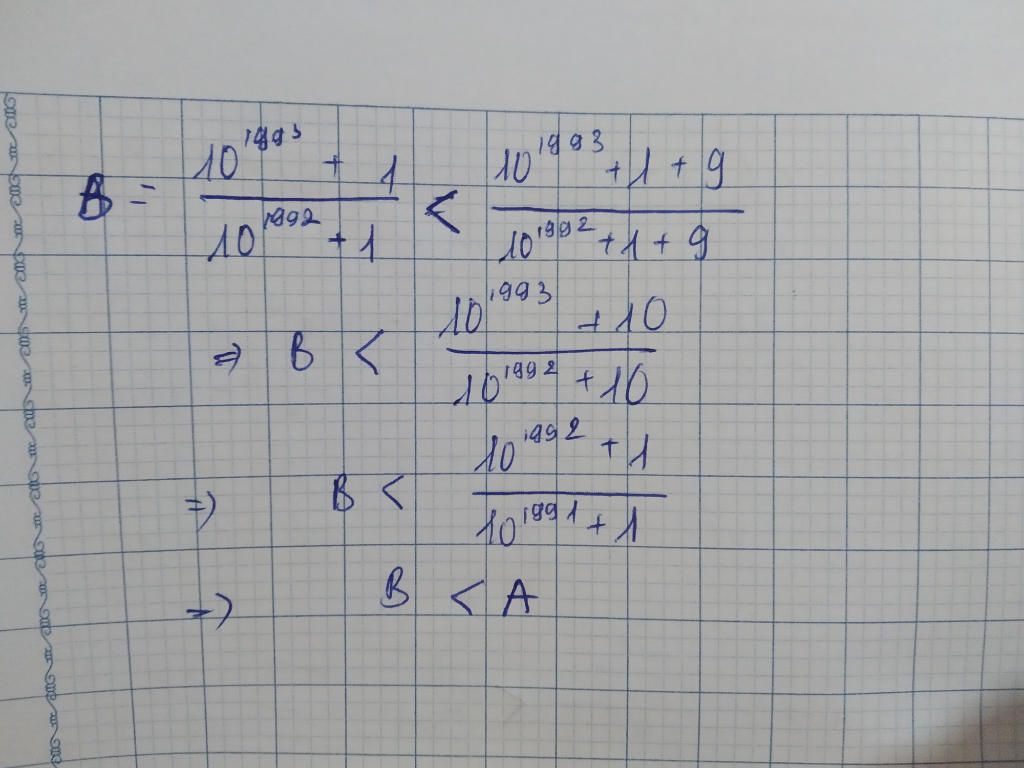 B = \frac{10^{1993} + 1}{10^{1992} + 1} < \frac{10^{1993} + 1 + 9}{10^{1992} + 1 + 9}
⇒ B < \frac{10^{1993} + 10}{10^{1992} + 10}
⇒ B < \frac{10^{1992} + 1}{10^{1991} + 1}
⇒ B < A